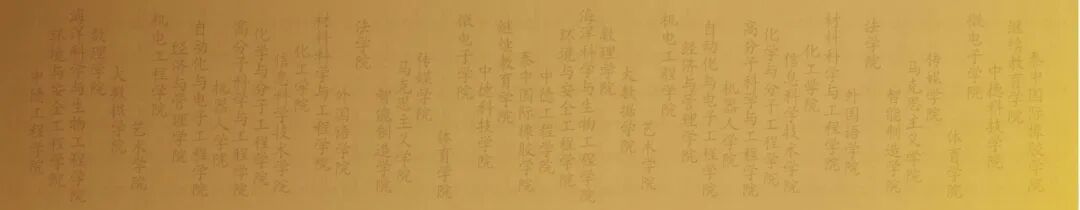 泰中国际橡胶学院
继续教育学院
中德科技学院
微电子学院
体育学院
传媒学院
马克思主义学院
智能制造学院
法学院
外国语学院
材料科学与工程学院
化工学院
信息科学技术学院
化学与分子工程学院
高分子科学与工程学院
机器人学院
自动化与电子工程学院
经济与管理学院
机电工程学院
艺术学院
大数据学院
数理学院
海洋科学与生物工程学院
环境与安全工程学院
中德工程学院
泰中国际橡胶学院
继续教育学院
中德科技学院
微电子学院
体育学院
传媒学院
马克思主义学院
智能制造学院
法学院
外国语学院
材料科学与工程学院
化工学院
信息科学技术学院
化学与分子工程学院
高分子科学与工程学院
机器人学院
自动化与电子工程学院
经济与管理学院
机电工程学院
艺术学院
大数据学院
数理学院
海洋科学与生物工程学院
环境与安全工程学院
中德工程学院